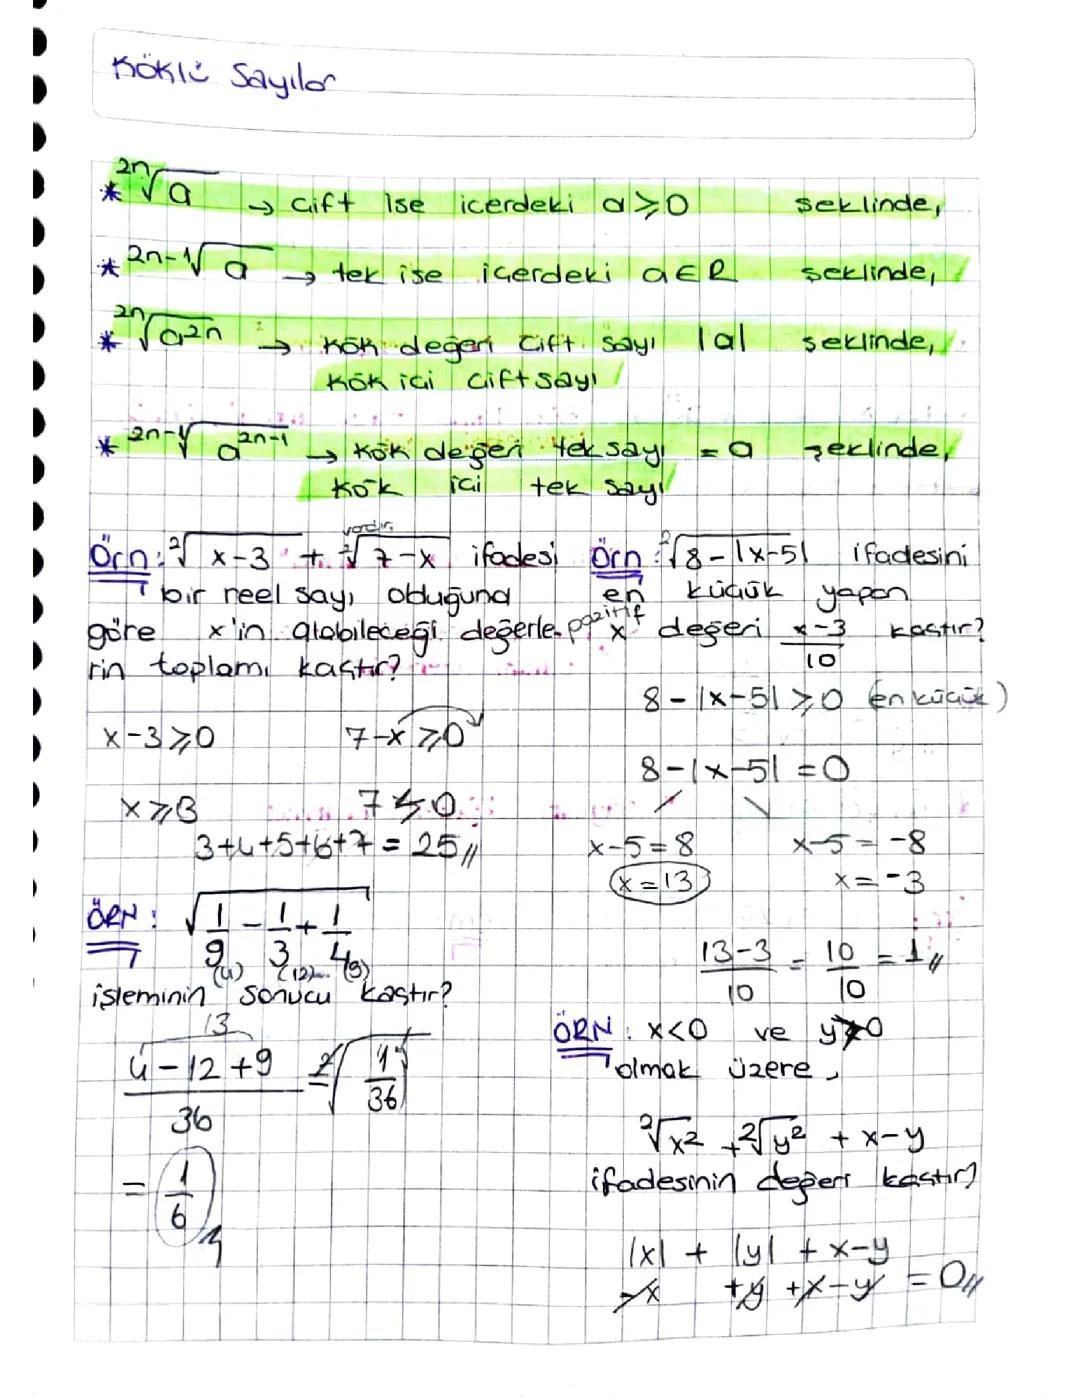 Köklü Sayılar
* 2n√a → çift ise içerdeki a ≥ 0 şeklinde,
* 2n-1√a → tek ise içerdeki a ∈ R şeklinde,
* 2n√a^2n → Kök değeri çift sayı |a| şeklinde,
Kök içi çift sayı
* 2n-1√a^2n-1 → Kök değeri tek sayı = a şeklinde,
Kök içi tek sayı
vardır.
Örn: 2√x-3 + 2√7-x ifadesi
bir reel sayı olduğuna
göre x'in alabileceği değerle-
rin toplamı kaçtır?
x-3 ≥ 0 7-x ≥ 0
x ≥ 3 7 ≥ 0
3+4+5+6+7 = 25//
ÖRN: √1/9 - 1/3 + 1/4
(4) (12) (9)
işleminin sonucu kaçtır?
13
4-12+9/36 = 2√1/36
= 1/6//
Örn: 2√8-|x-5| ifadesini
en küçük yapan
pozitif x değeri x-3/10 kaçtır?
8-|x-5| ≥ 0 (en küçük)
8-|x-5| = 0
x-5=8 x-5=-8
x=13 x=-3
13-3/10 = 10/10 = 1//
ÖRN: x<0 ve y>0
olmak üzere,
2√x² + 2√y² + x-y
ifadesinin değeri kaçtır?
|x| + |y| + x-y
-x +y +x-y = 0//